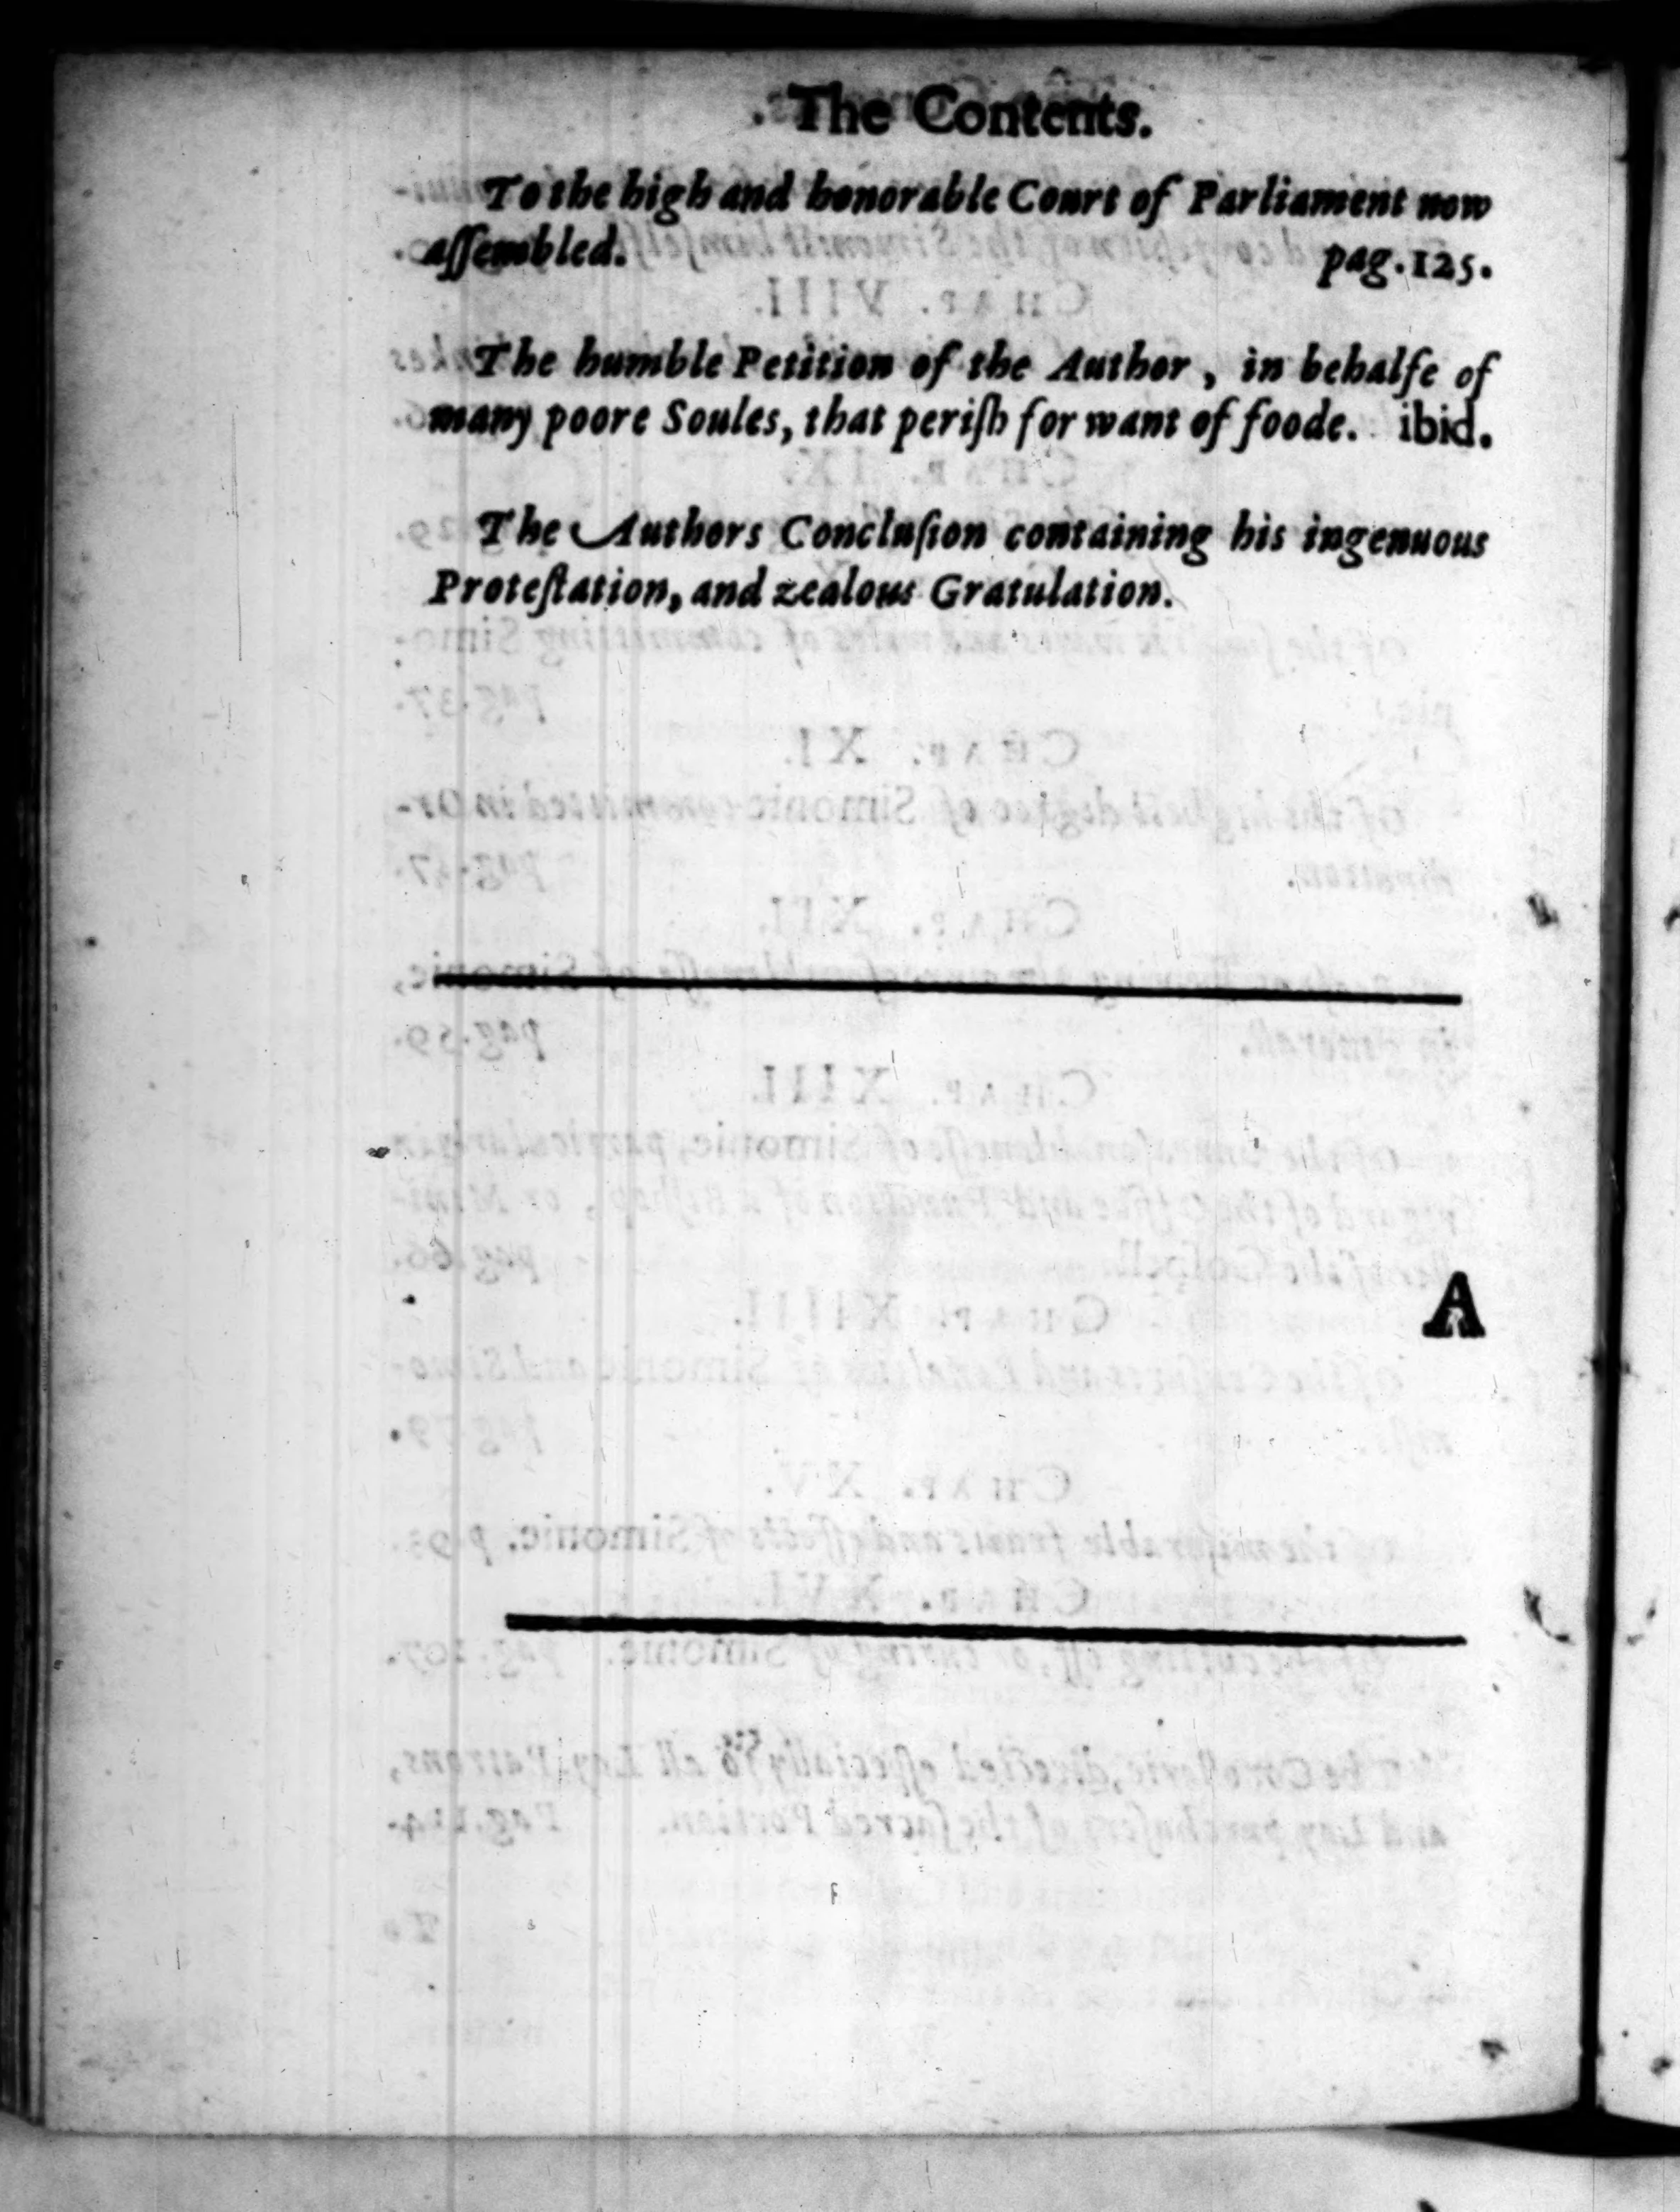 The Contents.
To the high and honorable Court of Parliament now
aſſembled. pag.125.
The humble Petition of the Author, in behalfe of
many poore Soules, that periſh for want of foode. ibid.
The Authors Concluſion containing his ingenuous
Proteſtation, and zealous Gratulation.
A